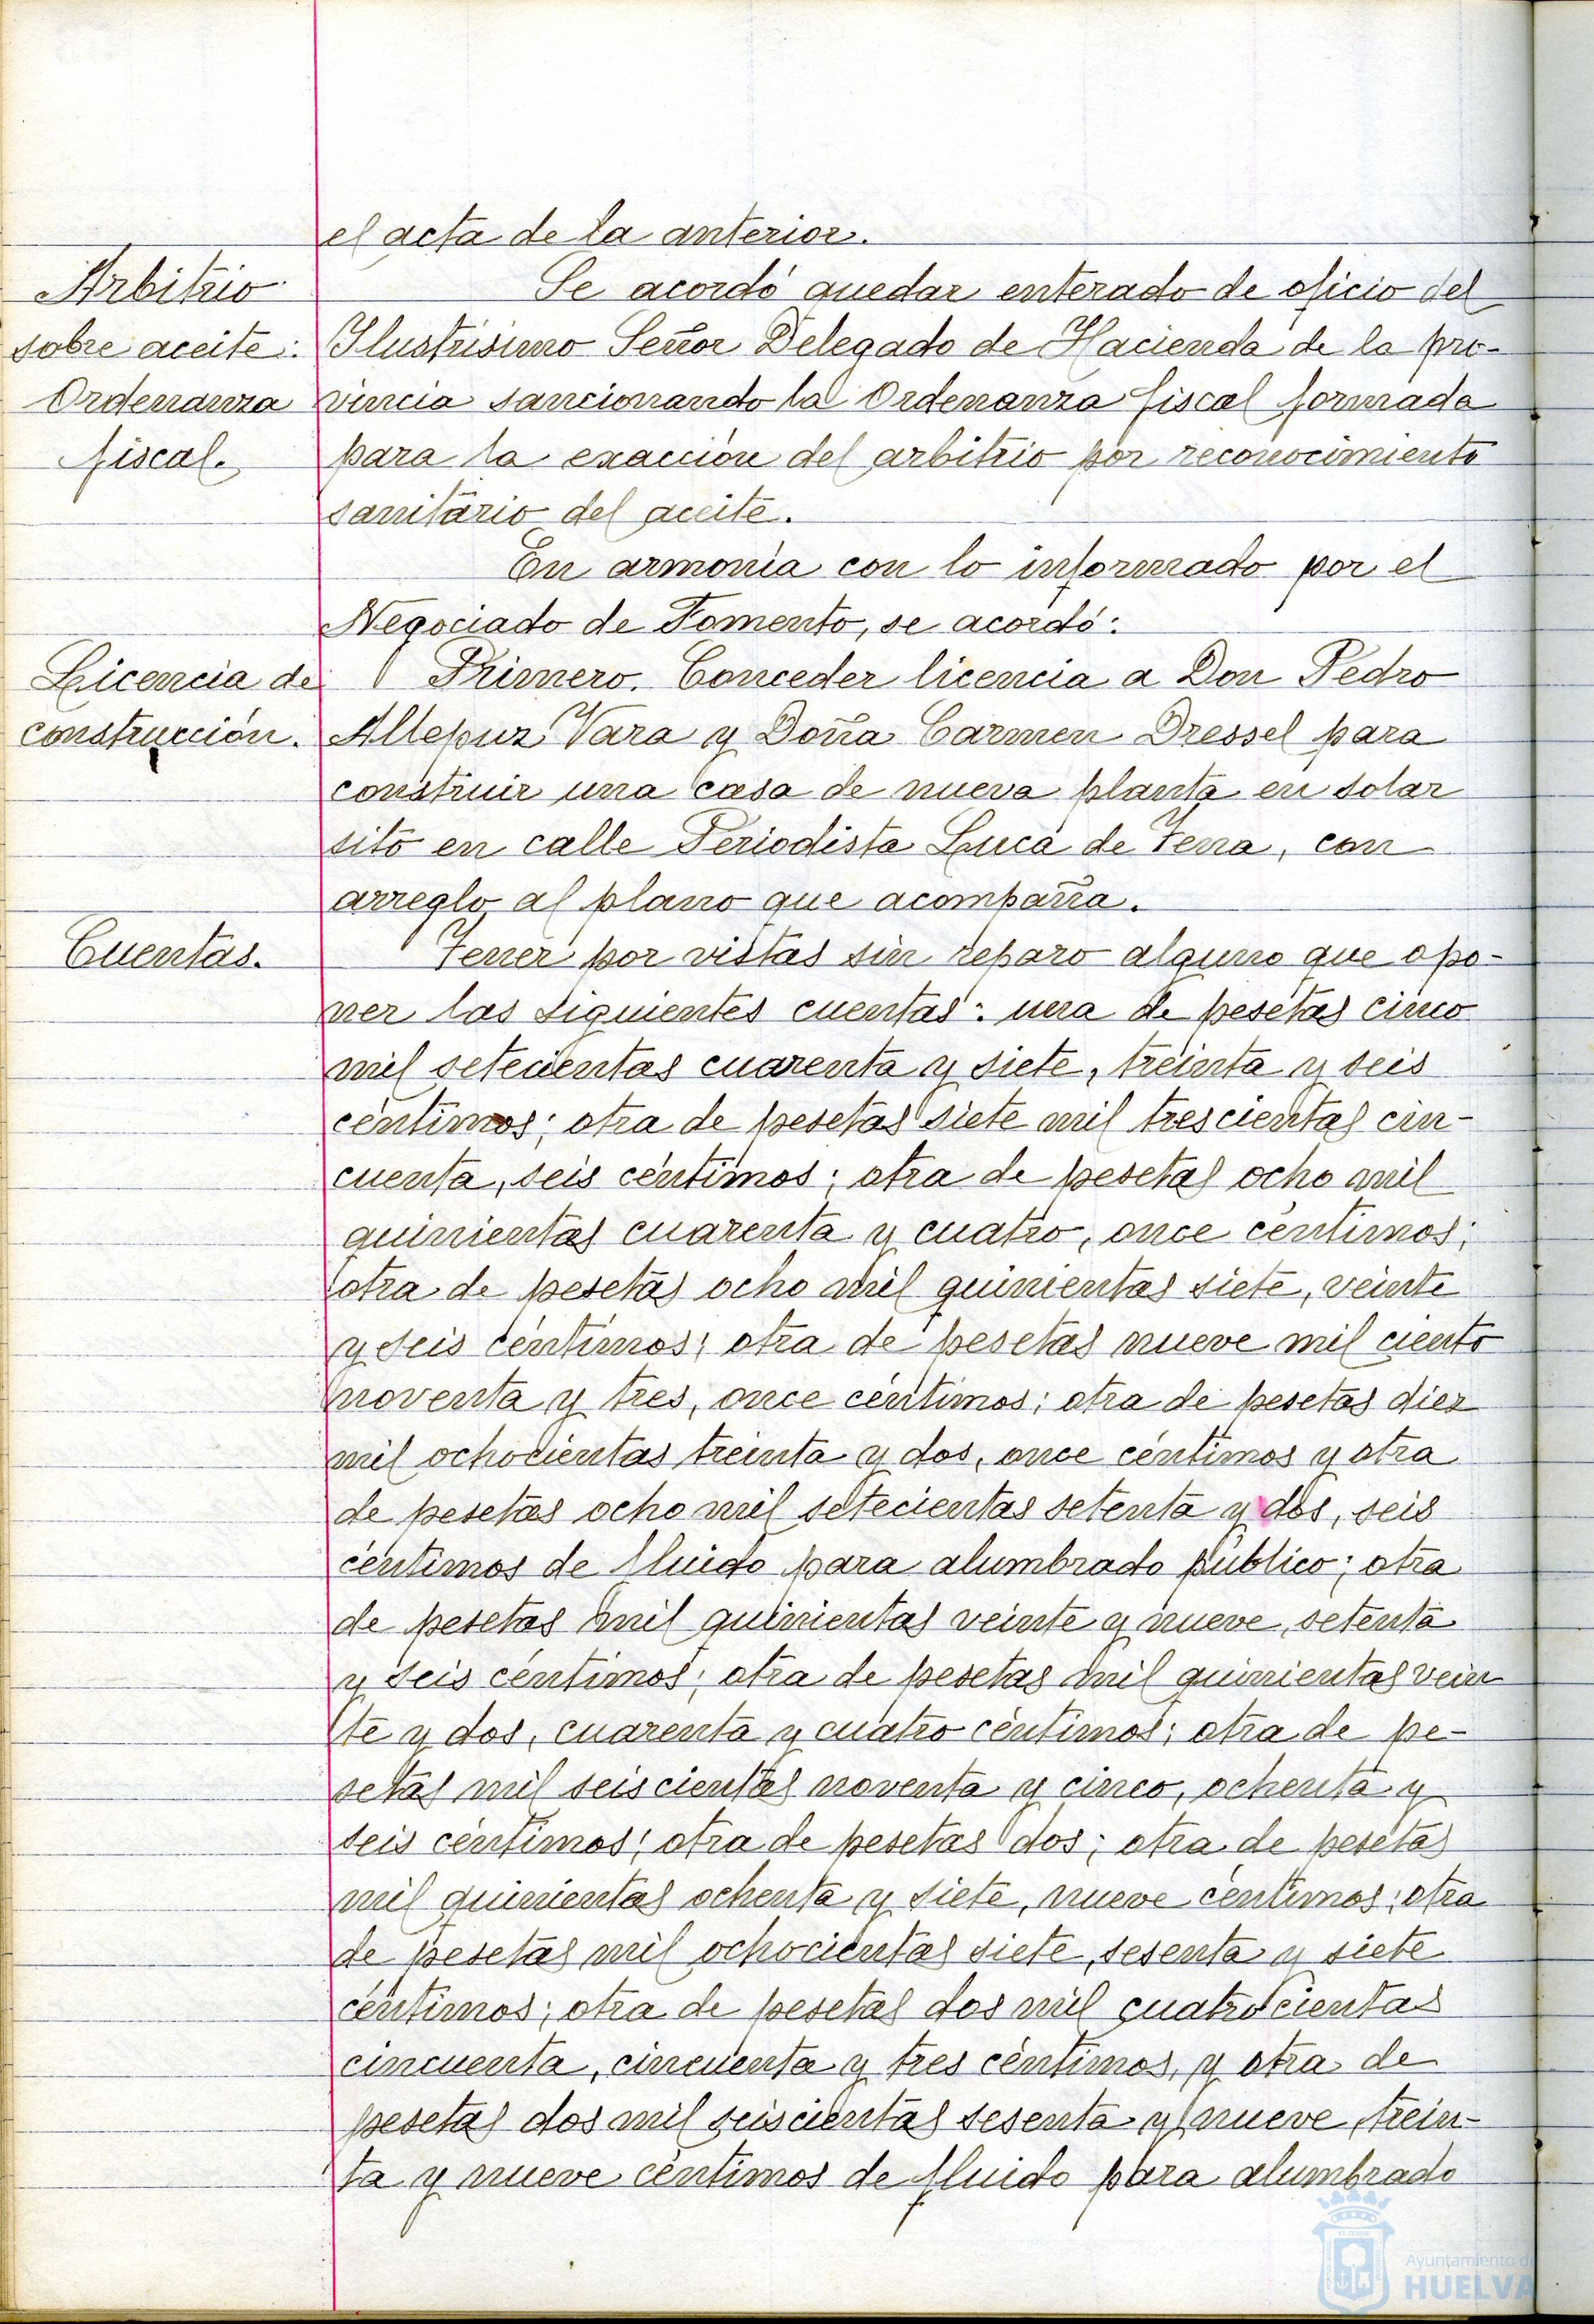 el acta de la anterior.
Arbitrio
sobre aceite:
Ordenanza
fiscal.
Se acordó quedar enterado de oficio del
Ilustrísimo Señor Delegado de Hacienda de la pro-
vincia sancionando la Ordenanza fiscal formada
para la exacción del arbitrio por reconocimiento
sanitario del aceite.
En armonía con lo informado por el
Negociado de Fomento, se acordó:
Licencia de
construcción.
Primero. Conceder licencia a Don Pedro
Allepuz Vara y Doña Carmen Dressel para
construir una casa de nueva planta en solar
sito en calle Periodista Luca de Tena, con
arreglo al plano que acompaña.
Cuentas.
Tener por vistas sin reparo alguno que opo-
ner las siguientes cuentas: una de pesetas cinco
mil setecientas cuarenta y siete, treinta y seis
céntimos; otra de pesetas siete mil trescientas cin-
cuenta, seis céntimos; otra de pesetas ocho mil
quinientas cuarenta y cuatro, once céntimos;
otra de pesetas ocho mil quinientas siete, veinte
y seis céntimos; otra de pesetas nueve mil ciento
noventa y tres, once céntimos; otra de pesetas diez
mil ochocientas treinta y dos, once céntimos y otra
de pesetas ocho mil setecientas setenta y dos, seis
céntimos de fluido para alumbrado público; otra
de pesetas mil quinientas veinte y nueve, setenta
y seis céntimos; otra de pesetas mil quinientas vein
te y dos, cuarenta y cuatro céntimos; otra de pe-
setas mil seiscientas noventa y cinco, ochenta y
seis céntimos; otra de pesetas dos; otra de pesetas
mil quinientas ochenta y siete, nueve céntimos; otra
de pesetas mil ochocientas siete, sesenta y siete
céntimos; otra de pesetas dos mil cuatrocientas
cincuenta, cincuenta y tres céntimos, y otra de
pesetas dos mil seiscientas sesenta y nueve, trein-
ta y nueve céntimos de fluido para alumbrado
Ayuntamiento de
HUELVA